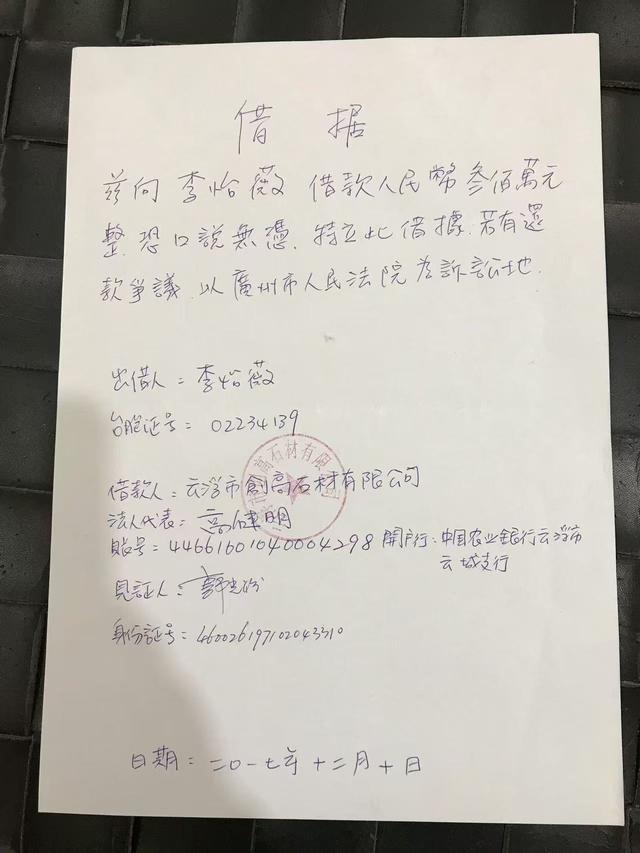 借 据
兹向 李怡薇 借款人民幣叁佰萬元
整.恐口說無憑.特立此借據.若有還
款爭議.以廣州市人民法院為訴訟地.
出借人：李怡薇
台胞证号：02234139
借款人：云浮市創高石材有限公司
法人代表：高健明
賬号：44661601040004298 開户行：中国农业银行云浮市
云城支行
見証人：郭
身份証号：460026197102043310
日期：二〇一七年十二月十日
高石材有限